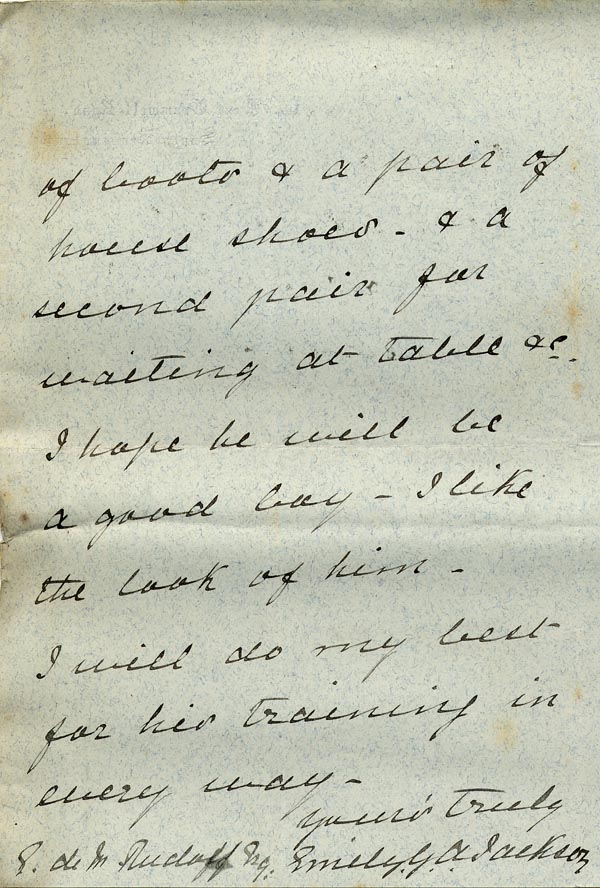 of boots & a pair of
house shoes - & a
second pair for
waiting at table &c.
I hope he will be
a good boy - I like
the look of him -
I will do my best
for his training in
every way -
yours truly
E. de M Rudolf Esq. Emily. G. A. Jackson